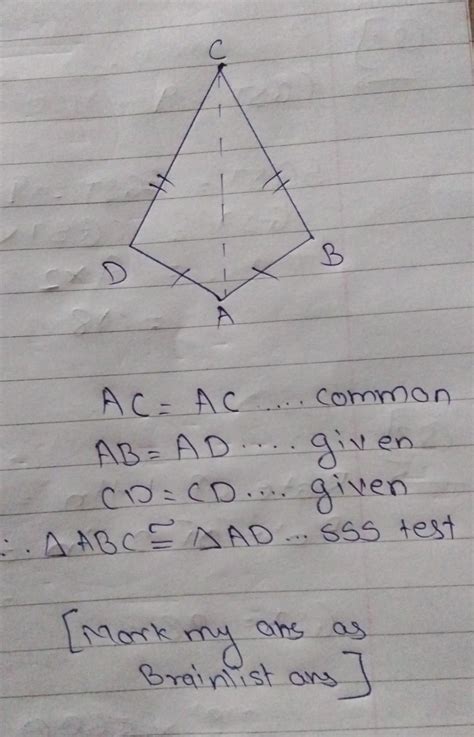 C
D
B
A
AC = AC .... common
AB = AD .... given
CD = CD .... given
∴ △ABC ≅ △AD ... SSS test
[Mark my ans as
Brainlist ans]